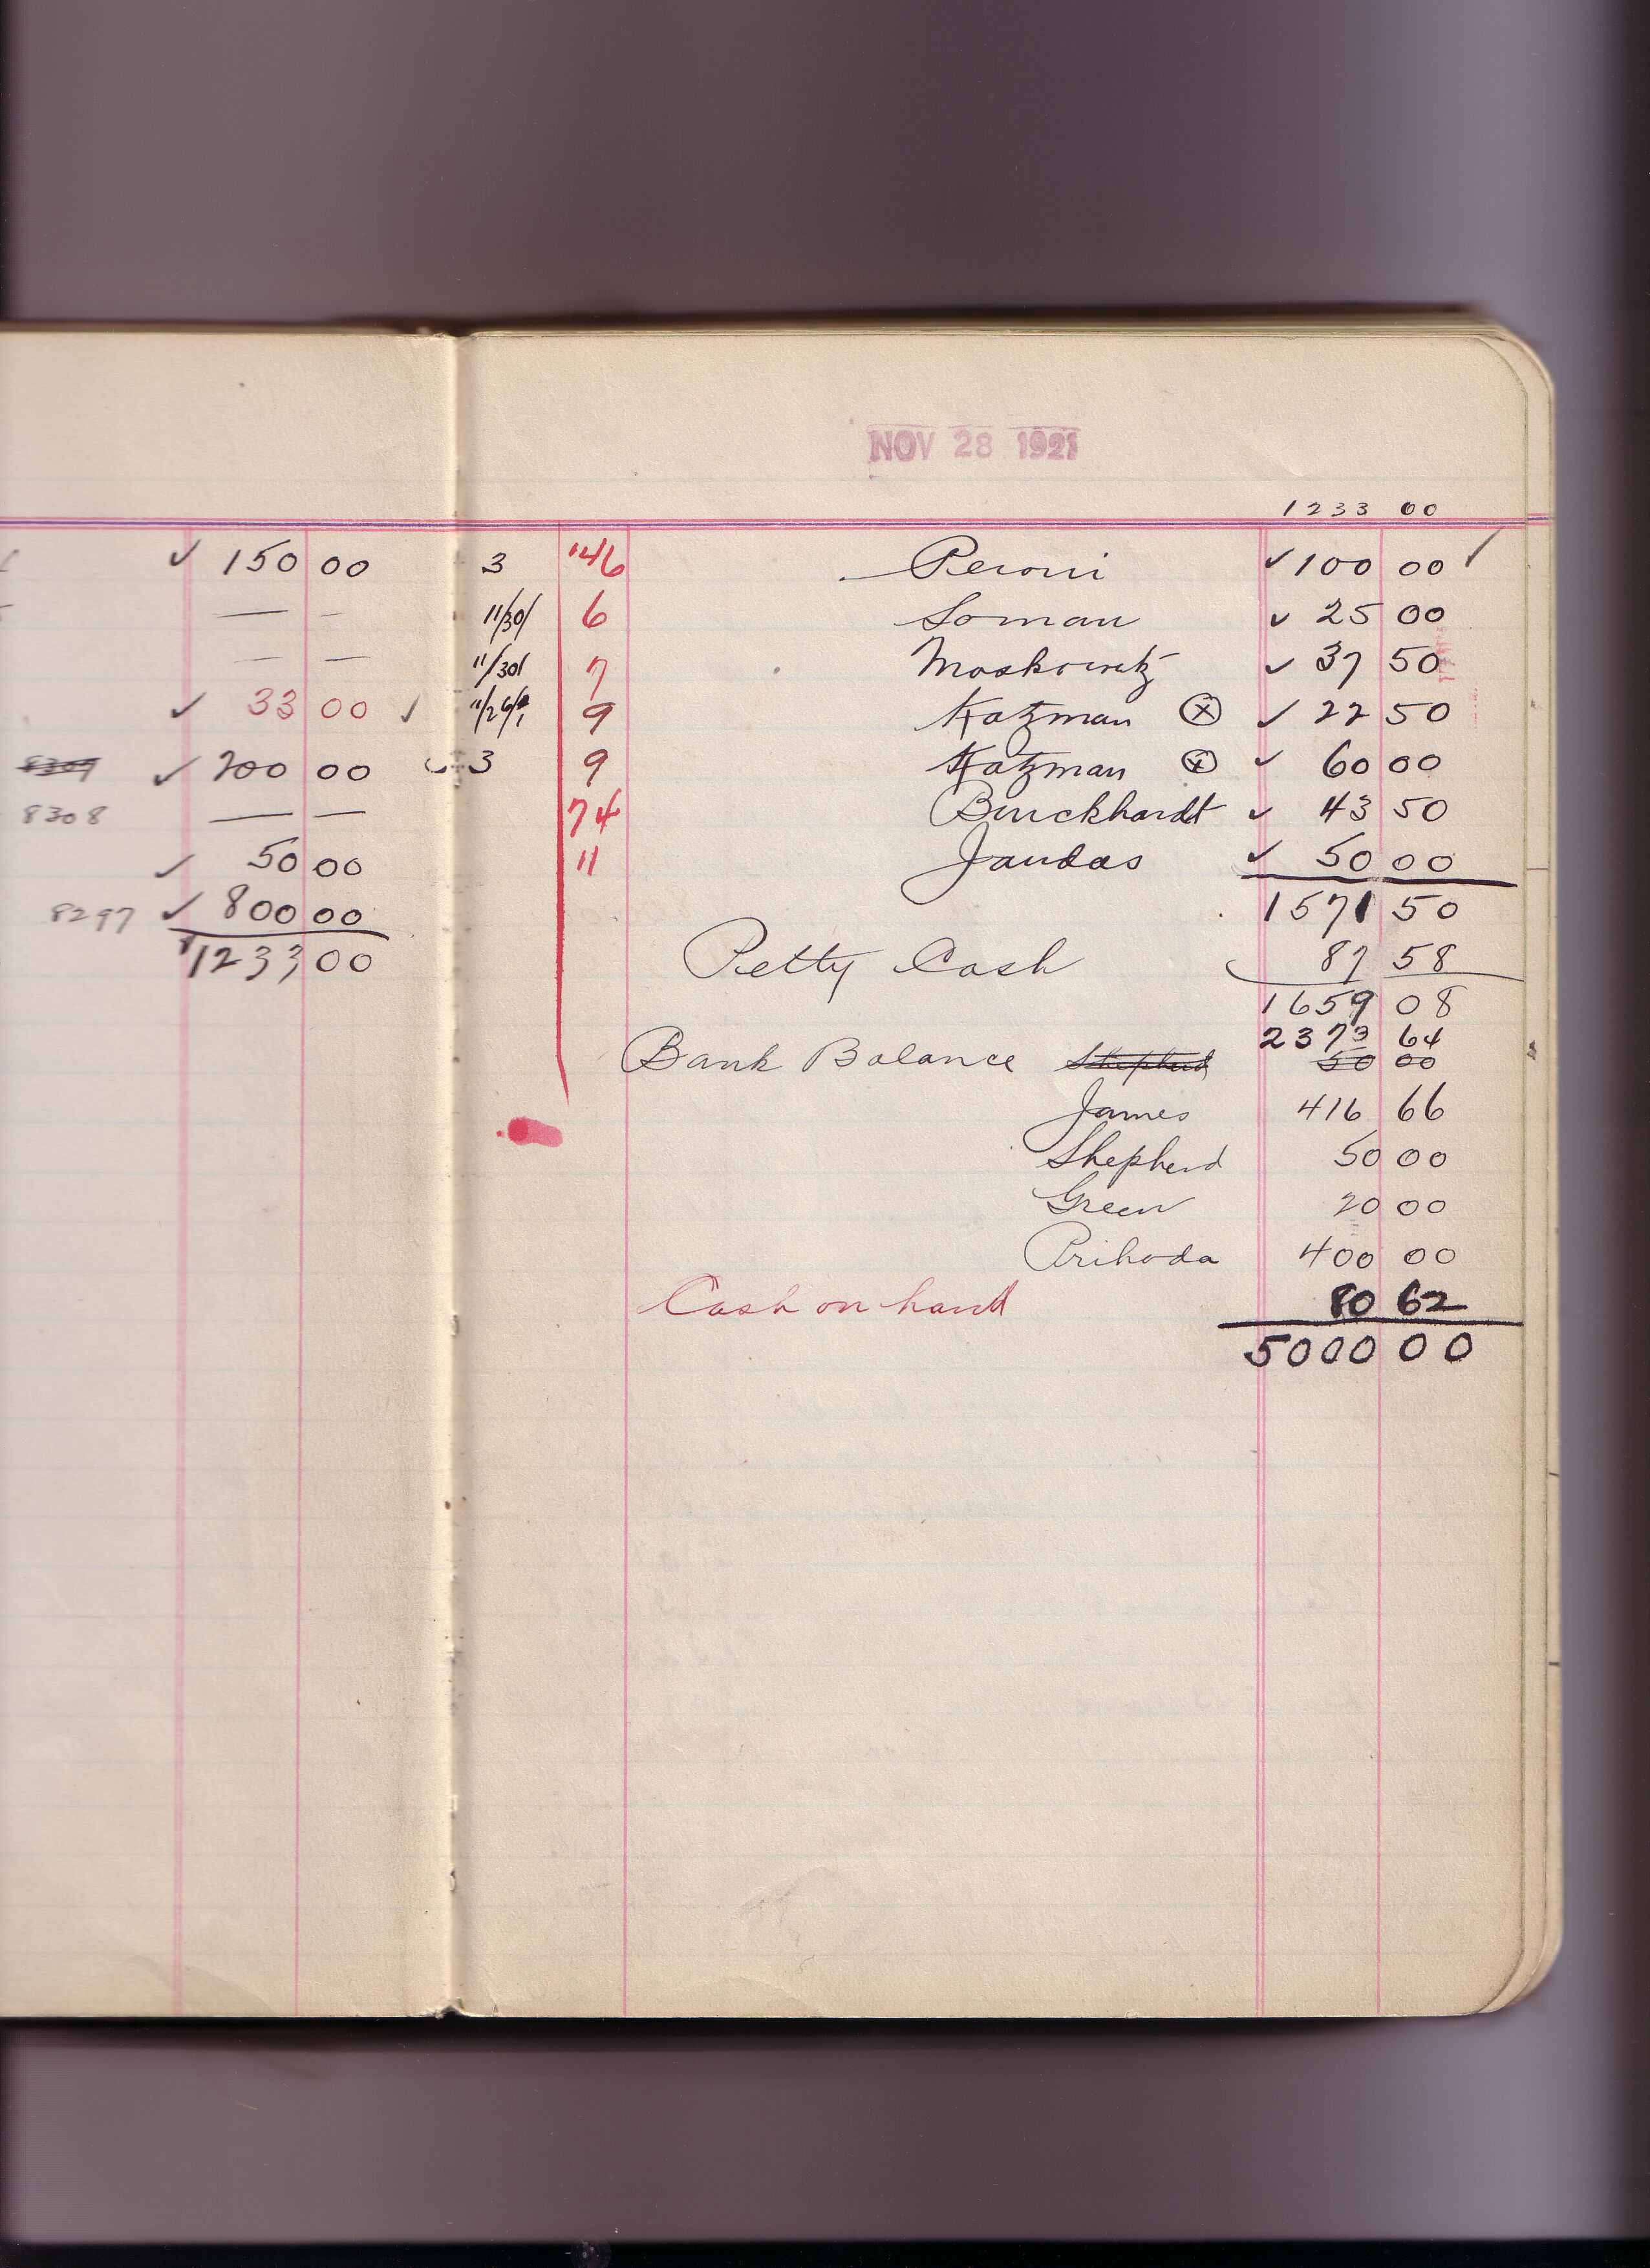 NOV 28 1921
1233 00
✓ 150 00
— —
— —
✓ 33 00 ✓
8307 ✓ 200 00
8308 — —
✓ 50 00
8297 ✓ 800 00
1233 00
3 Peroni ✓ 100 00 ✓
11/30/ 6 Loman ✓ 25 00
11/30/ 7 Moskowitz ✓ 37 50
9 Katzman ⓧ ✓ 22 50
3 9 Katzman ⓧ ✓ 60 00
74 Burckhardt ✓ 43 50
11 Jaudas ✓ 50 00
1571 50
Petty Cash 87 58
1659 08
2373 64
Bank Balance Shepherd 50 00
James 416 66
Shepherd 50 00
Green 20 00
Prihoda 400 00
Cash on hand 80 62
5000 00